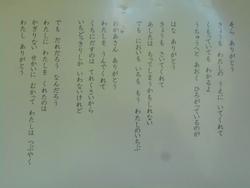 そら ありがとう
きょうも わたしの うえに いてくれて
くもっていても わかるよ
うちゅうへと あおく ひろがっているのが

はな ありがとう
きょうも さいていてくれて
あしたは ちってしまうかもしれない
でも においも いろも もう わたしのいちぶ

おかあさん ありがとう
わたしを うんでくれて
くちにだすのは てれくさいから
いちどっきりしか いわないけれど

でも だれだろう なんだろう
わたしに わたしを くれたのは
かぎりない せかいに むかって わたしは つぶやく
わたし ありがとう